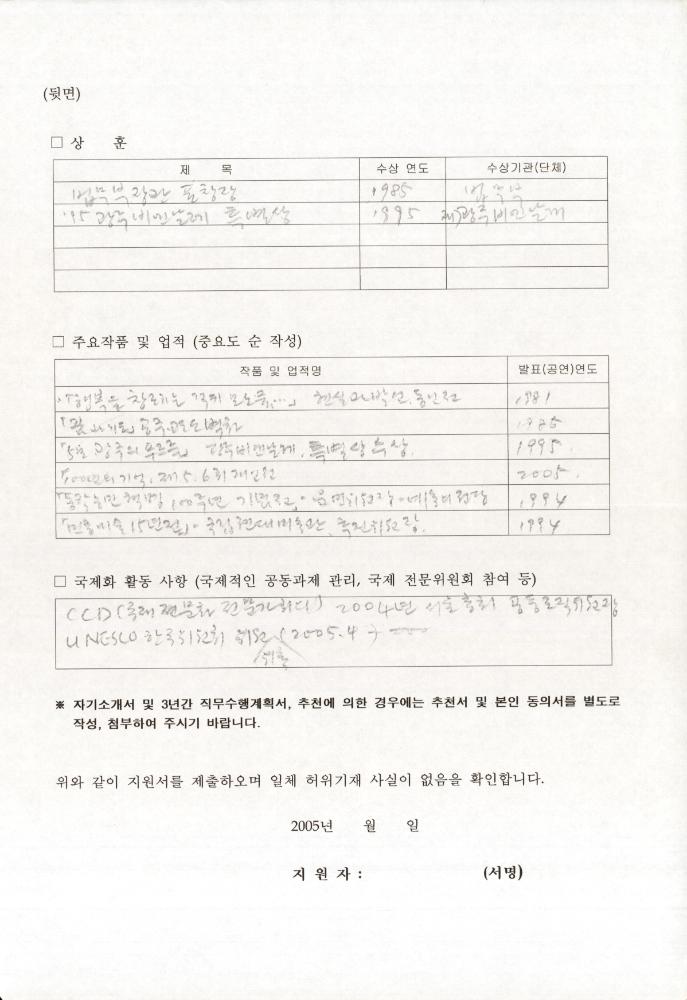 (뒷면)
□ 상 훈
제 목 수상 연도 수상기관(단체)
법무부장관 표창장 1985 법무부
'95 광주비엔날레 특별상 1995 재)광주비엔날레
□ 주요작품 및 업적 (중요도 순 작성)
작품 및 업적명 발표(공연)연도
「행복을 창조하는 현실과 발언, 동인전 1981
벽화 1986
광주의 푸르름」 광주비엔날레, 특별상 수상. 1995.
기억, 제5.6회 개인전 2005.
「동학농민혁명 100주년 기념전」· 운영위원장· 예술의 전당 1994
「민중미술 15년전」· 국립현대미술관, 추진위원장. 1994
□ 국제화 활동 사항 (국제적인 공동과제 관리, 국제 전문위원회 참여 등)
CCD (국제 전문가회의) 2004년 서울총회 공동조직위원장
UNESCO 한국위원회 위원 (2005.4 →
위촉
※ 자기소개서 및 3년간 직무수행계획서, 추천에 의한 경우에는 추천서 및 본인 동의서를 별도로
작성, 첨부하여 주시기 바랍니다.
위와 같이 지원서를 제출하오며 일체 허위기재 사실이 없음을 확인합니다.
2005년 월 일
지 원 자 : (서명)